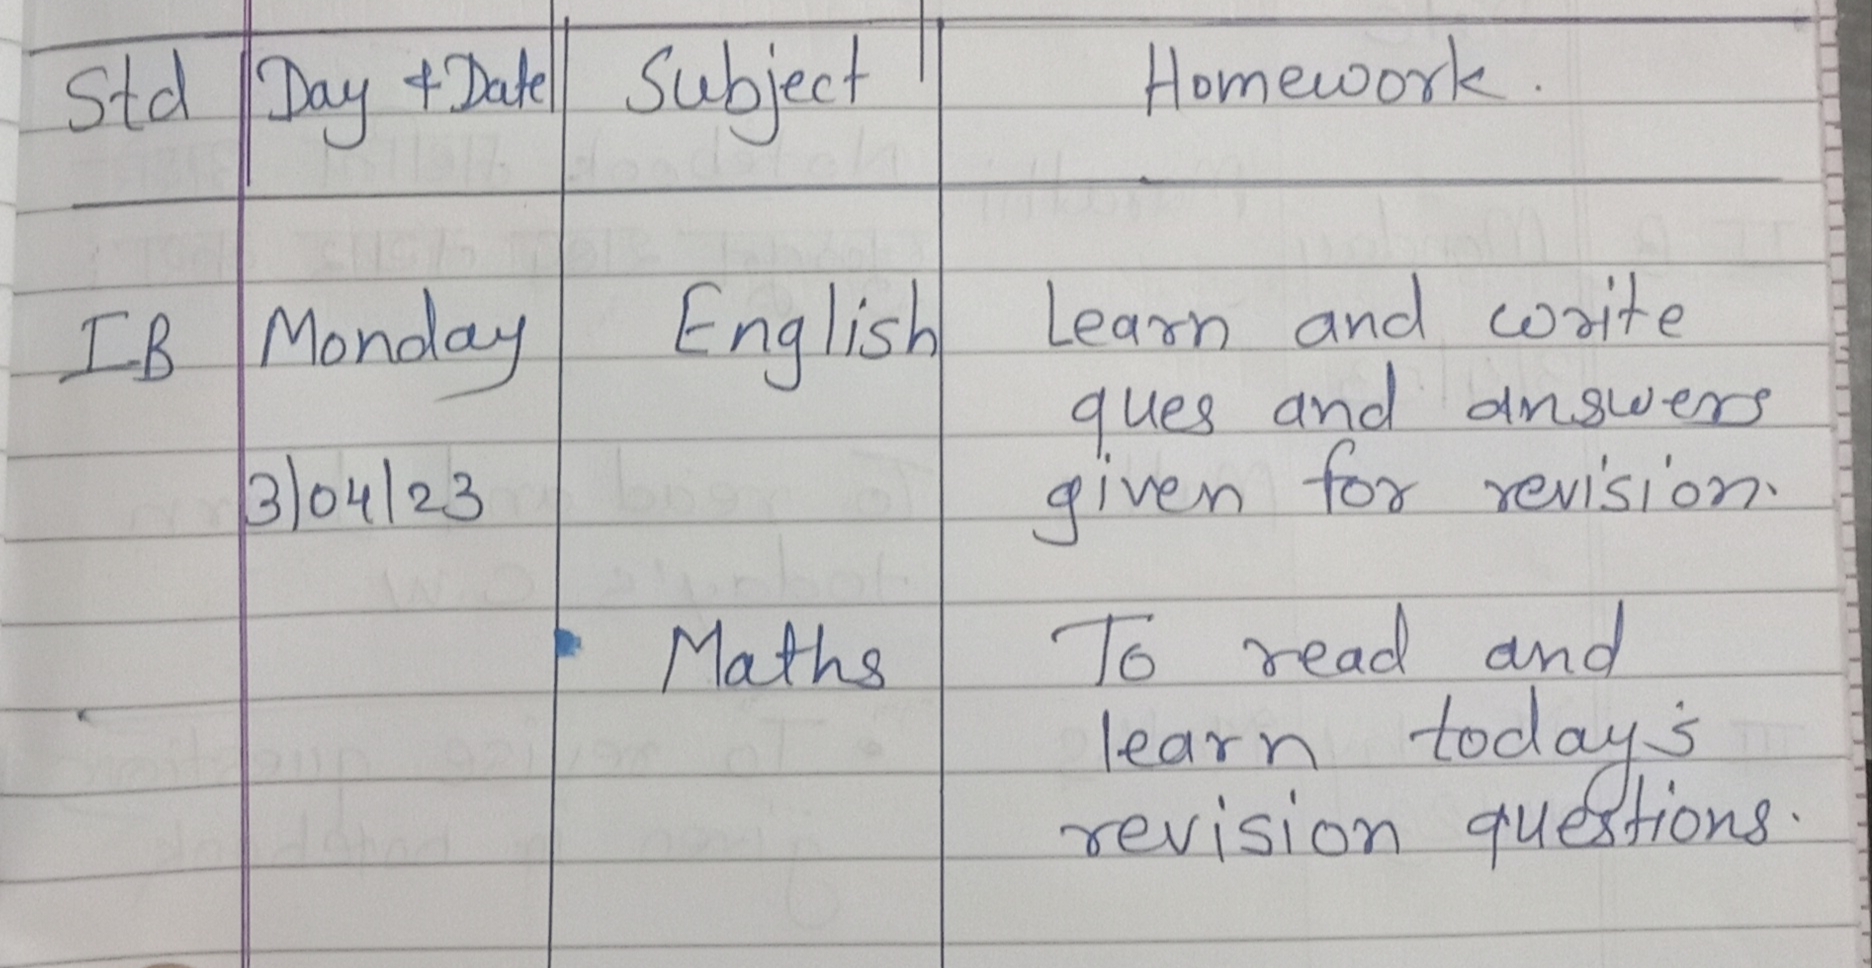 Std Day & Date Subject Homework.
IB Monday English Learn and write
ques and answers
3/04/23 given for revision.
Maths To read and
learn today's
revision questions.